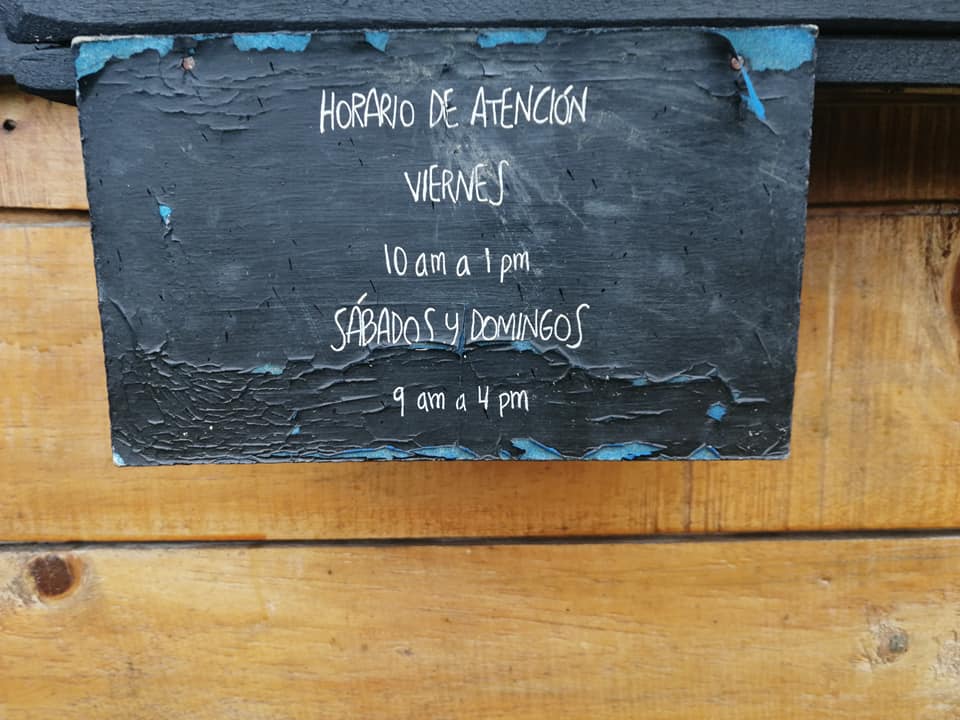 HORARIO DE ATENCIÓN
VIERNES
10 am a 1 pm
SÁBADOS Y DOMINGOS
9 am a 4 pm